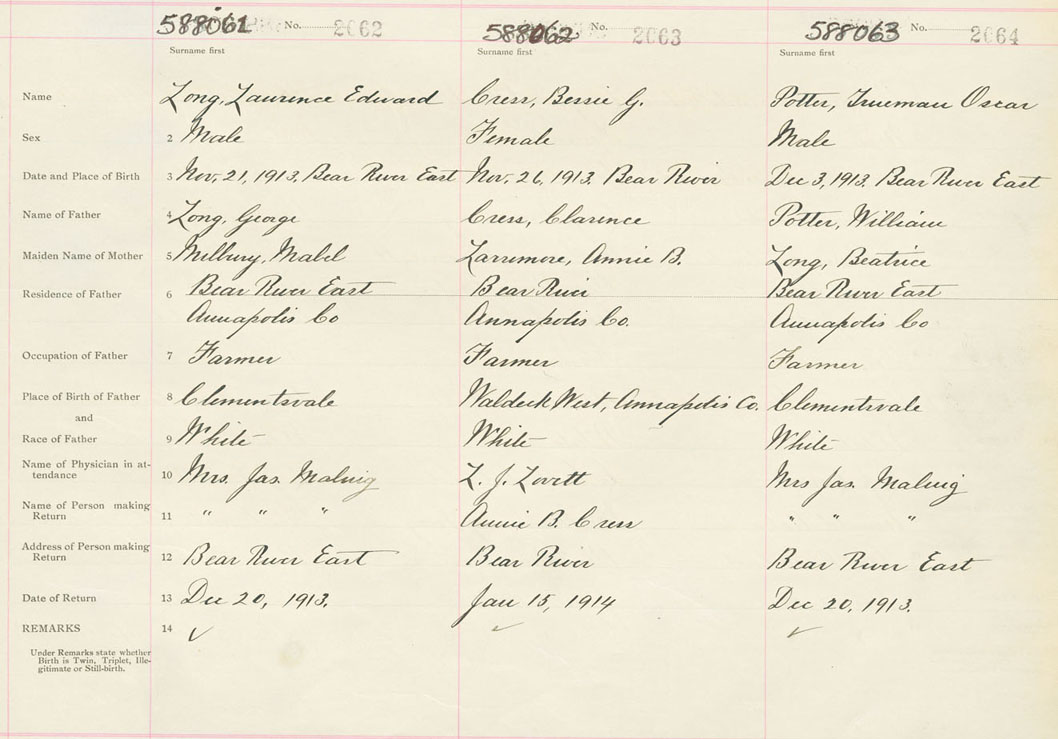 588061 No. 2062 588062 No. 2063 588063 No. 2064
Surname first Surname first Surname first
Name Long, Laurence Edward Cress, Bessie G. Potter, Trueman Oscar
Sex 2 Male Female Male
Date and Place of Birth 3 Nov. 21, 1913. Bear River East Nov. 26, 1913. Bear River Dec 3, 1913. Bear River East
Name of Father 4 Long, George Cress, Clarence Potter, William
Maiden Name of Mother 5 Milbury, Mabel Larrimore, Annie B. Long, Beatrice
Residence of Father 6 Bear River East Bear River Bear River East
Annapolis Co Annapolis Co. Annapolis Co
Occupation of Father 7 Farmer Farmer Farmer
Place of Birth of Father 8 Clementsvale Waldeck West, Annapolis Co. Clementsvale
and
Race of Father 9 White White White
Name of Physician in at-
tendance 10 Mrs. Jas. L. J. Lovett Mrs Jas.
Name of Person making
Return 11 " " " Annie B. Cress " " "
Address of Person making
Return 12 Bear River East Bear River Bear River East
Date of Return 13 Dec 20, 1913. Jan 15, 1914 Dec 20, 1913.
REMARKS 14 ✓ ✓ ✓
Under Remarks state whether
Birth is Twin, Triplet, Ille-
gitimate or Still-birth.